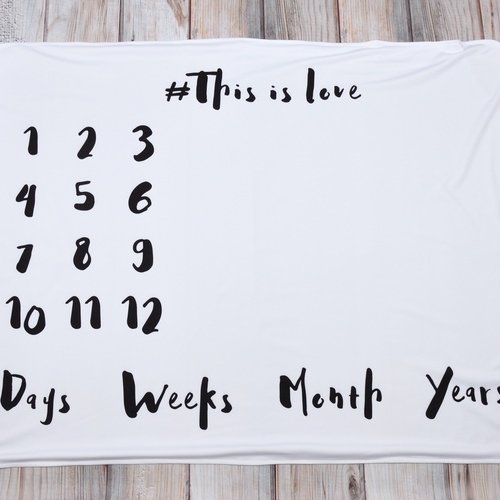 #This is love
1 2 3
4 5 6
7 8 9
10 11 12
Days Weeks Month Years